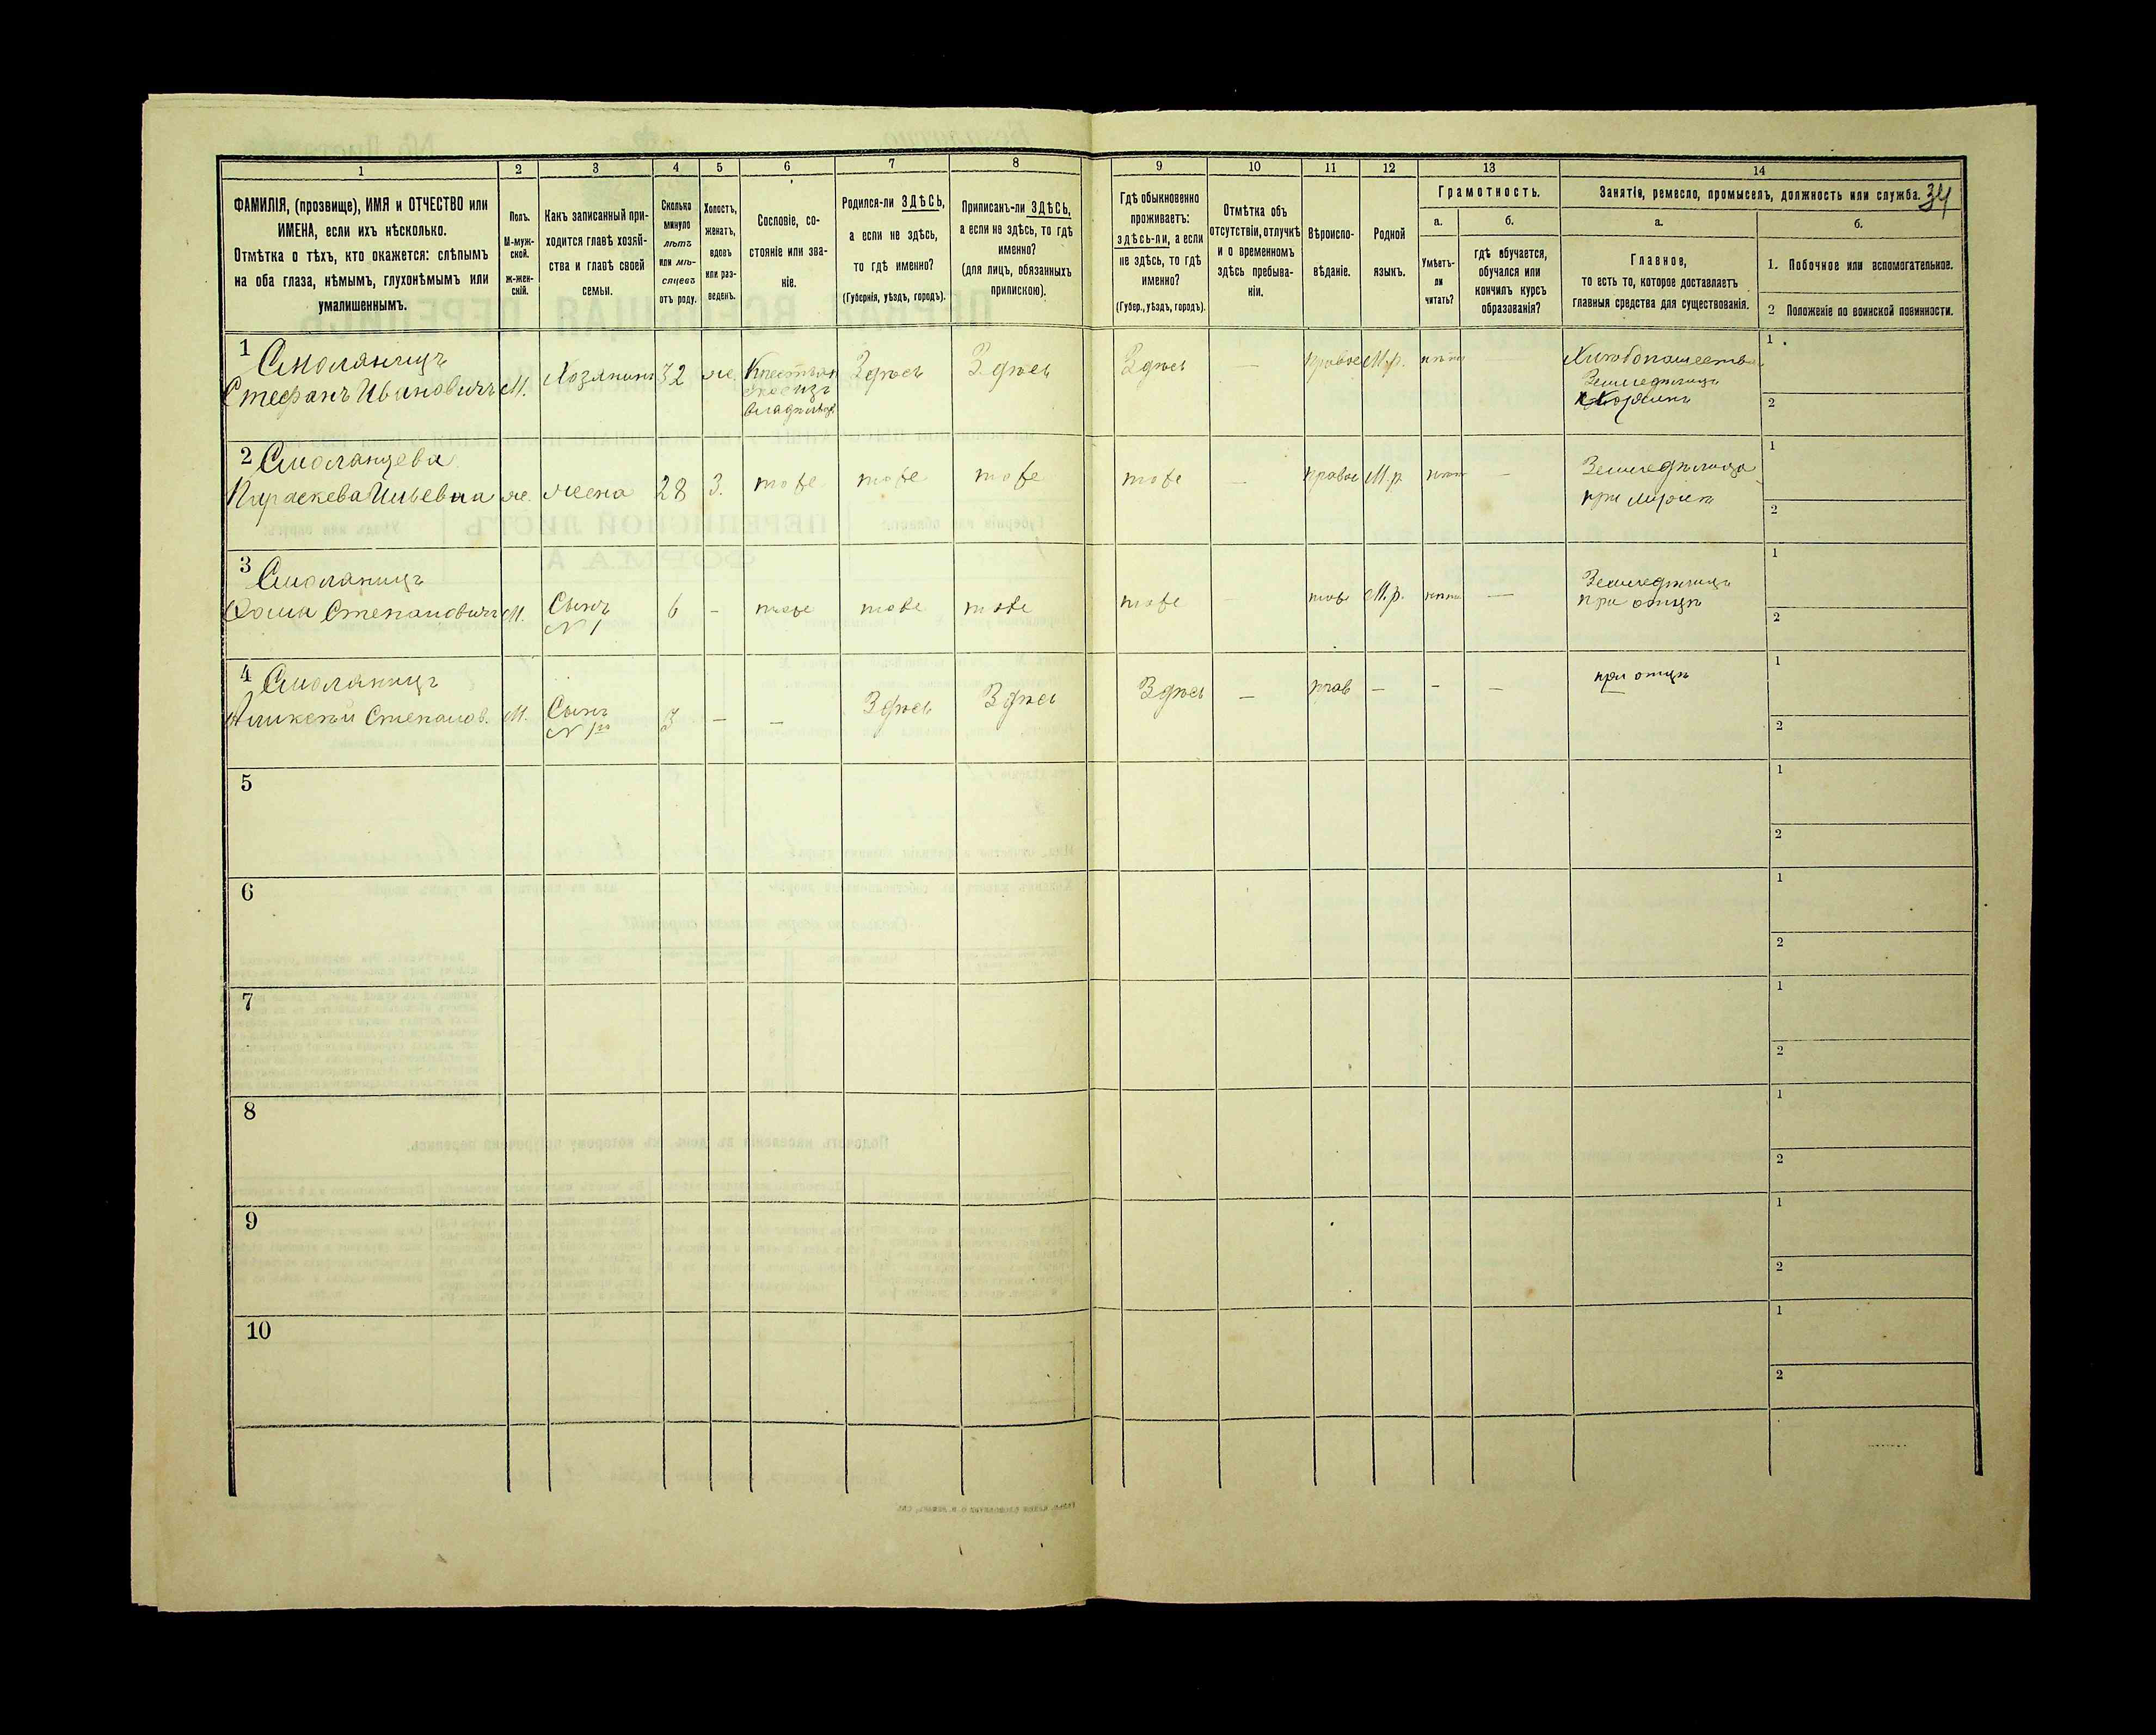 1
2
3
4
5
6
7
8
ФАМИЛІЯ, (прозвище), ИМЯ и ОТЧЕСТВО или
ИМЕНА, если ихъ нѣсколько.
Отмѣтка о тѣхъ, кто окажется: слѣпымъ
на оба глаза, нѣмымъ, глухонѣмымъ или
умалишеннымъ.
Полъ.
М-муж-
ской.
ж-жен-
скій.
Какъ записанный при-
ходится главѣ хозяй-
ства и главѣ своей
семьи.
Сколько
минуло
лѣтъ
или мѣ-
сяцевъ
отъ роду.
Холостъ,
женатъ,
вдовъ
или раз-
веденъ.
Сословіе, со-
стояніе или зва-
ніе.
Родился-ли ЗДѢСЬ,
а если не здѣсь,
то гдѣ именно?
(Губернія, уѣздъ, городъ).
Приписанъ-ли ЗДѢСЬ,
а если не здѣсь, то гдѣ
именно?
(для лицъ, обязанныхъ
припискою).
9
10
11
12
13
14
Гдѣ обыкновенно
проживаетъ:
здѣсь-ли, а если
не здѣсь, то гдѣ
именно?
(Губер., уѣздъ, городъ).
Отмѣтка объ
отсутствіи, отлучкѣ
и о временномъ
здѣсь пребыва-
ніи.
Вѣроиспо-
вѣданіе.
Родной
языкъ.
Грамотность.
а.
б.
Умѣетъ-
ли
читать?
гдѣ обучается,
обучался или
кончилъ курсъ
образованія?
Занятіе, ремесло, промыселъ, должность или служба.
34
а.
б.
Главное,
то есть то, которое доставляетъ
главныя средства для существованія.
1. Побочное или вспомогательное.
2 Положеніе по воинской повинности.
1 Смоляницъ
Стефанъ Ивановичъ
М.
Хозяинъ
32
же.
Крестьян
владѣльч
Здѣсь
Здѣсь
Здѣсь
—
Правос
М.р.
нѣтъ
Хлѣбопашество
Земледѣлецъ
Хозяинъ
1
2
2 Смолянцева
Параскева Ильевна
же.
жена
28
З.
тоже
тоже
тоже
тоже
—
Правос
М.р.
нѣтъ
—
Земледѣлица
при мужѣ
1
2
3 Смоляницъ
Фома Степановичъ
М.
Сынъ
№ 1
6
–
тоже
тоже
тоже
тоже
—
тоже
М.р.
нѣтъ
—
Земледѣлецъ
при отцѣ
1
2
4 Смоляницъ
Степанов.
М.
Сынъ
№ 1го
3
—
—
Здѣсь
Здѣсь
Здѣсь
—
прав
—
–
—
при отцѣ
1
2
5
1
2
6
1
2
7
1
2
8
1
2
9
1
2
10
1
2